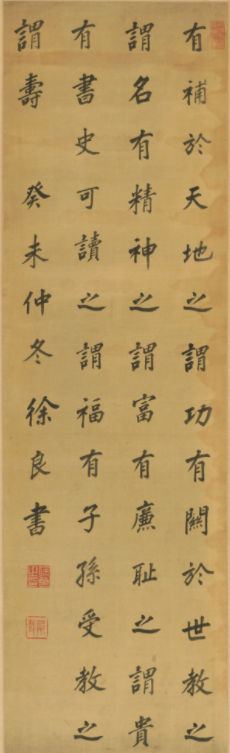 有補於天地之謂功有關於世教之
謂名有精神之謂富有廉耻之謂貴
有書史可讀之謂福有子孫受教之
謂壽 癸未仲冬徐良書